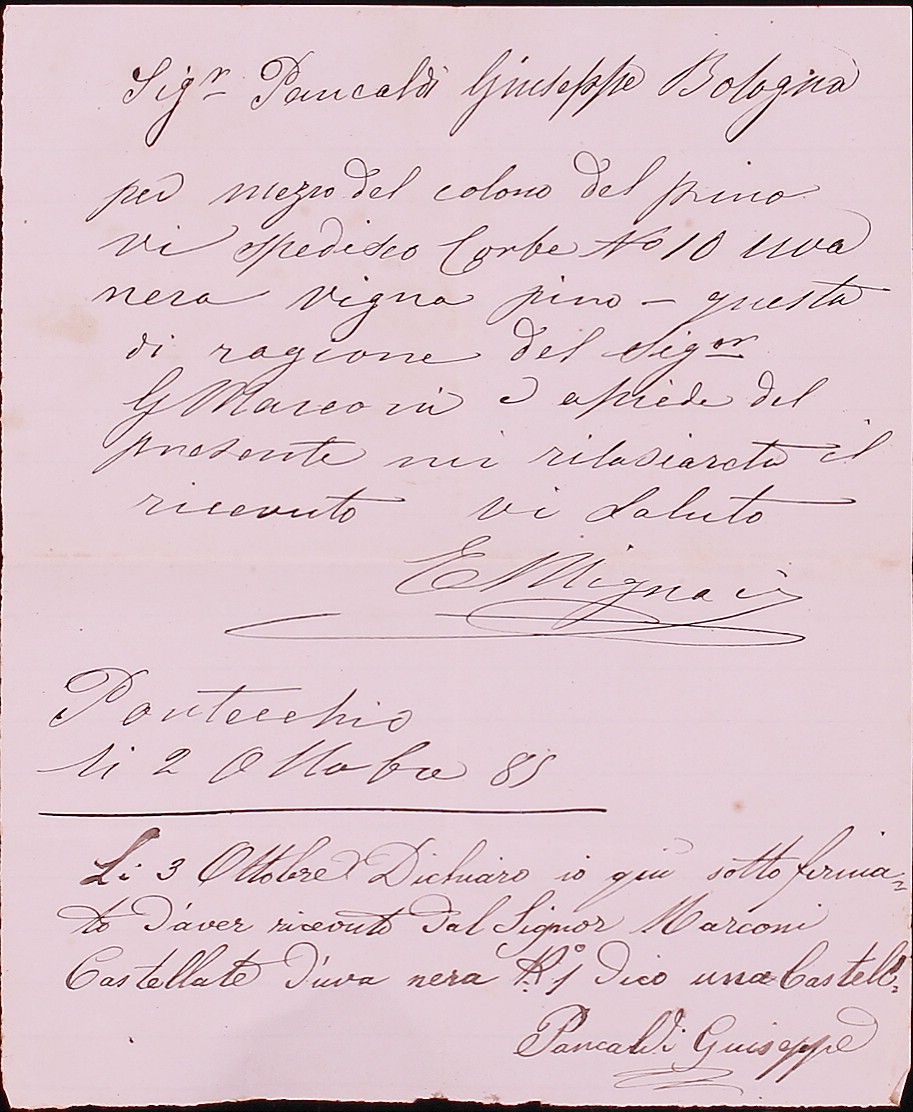 Sigr Pancaldi Giuseppe Bologna
per mezzo del colono del pino
vi spedisco Corbe No 10 uva
nera vigna pino - questa
di ragione del Sigor
G Marconi e apiede del
presente mi rilasiareta il
ricevuto vi saluto
E Mignani
Pontecchio
li 2 Ottobre 85
Li 3 Ottobre Dichiaro io qui sotto firma=
to d'aver ricevuto dal Signor Marconi
Castellate d'uva nera No 1 dico una Castell=
Pancaldi Guiseppe